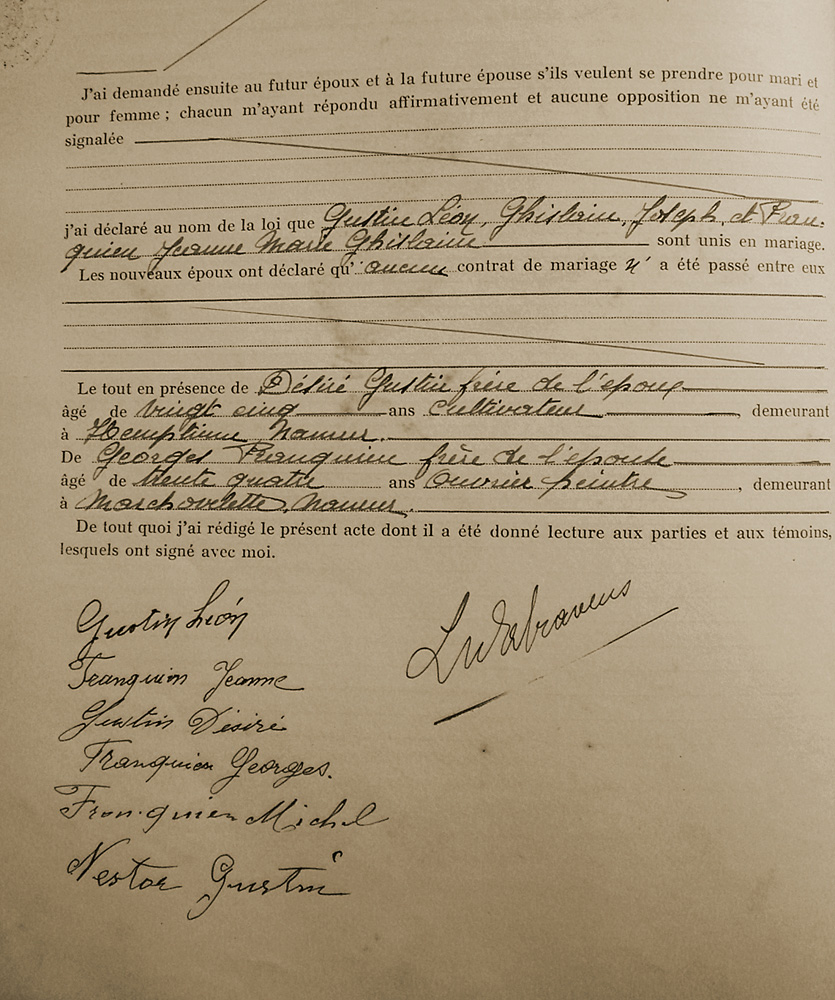 J'ai demandé ensuite au futur époux et à la future épouse s'ils veulent se prendre pour mari et
pour femme ; chacun m'ayant répondu affirmativement et aucune opposition ne m'ayant été
signalée
j'ai déclaré au nom de la loi que Gustin Léon, Ghislain, Joseph, et Fran-
quien Jeanne Marie Ghislaine sont unis en mariage.
Les nouveaux époux ont déclaré qu' aucun contrat de mariage n' a été passé entre eux
Le tout en présence de Désiré Gustin frère de l'epoux
âgé de vingt cinq ans cultivateur, demeurant
à Hemptinne Namur.
De Georges Franquien frère de l'epouse
âgé de trente quatre ans ouvrier peintre, demeurant
à Marchovelette, Namur.
De tout quoi j'ai rédigé le présent acte dont il a été donné lecture aux parties et aux témoins,
lesquels ont signé avec moi.
Gustin Léon
Franquien Jeanne
Gustin Désiré
Franquien Georges.
Franquien Michel
Nestor Gustin